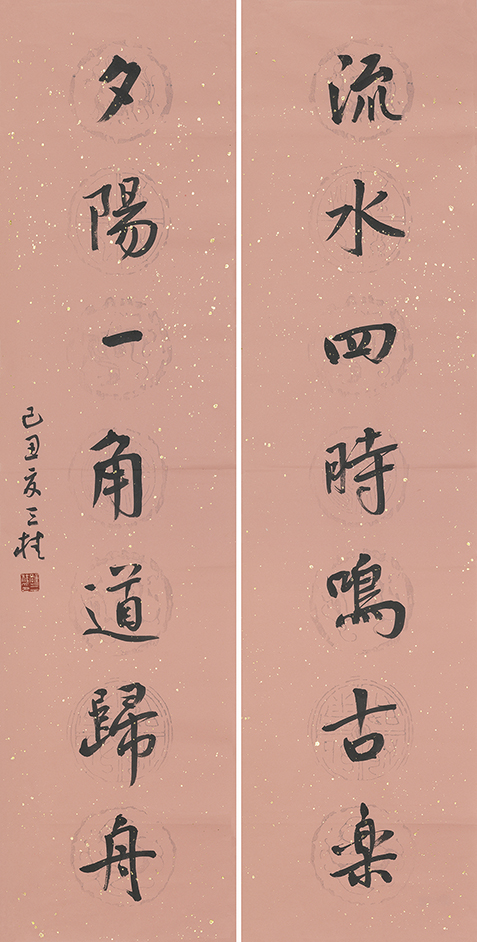 流水四時鳴古楽
夕陽一角道歸舟
己丑夏三桂